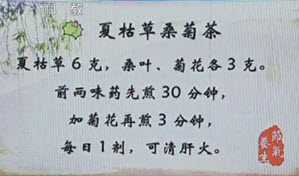 夏枯草桑菊茶
夏枯草6克，桑叶、菊花各3克。
前两味药先煎30分钟，
加菊花再煎3分钟，
每日1剂，可清肝火。
养生